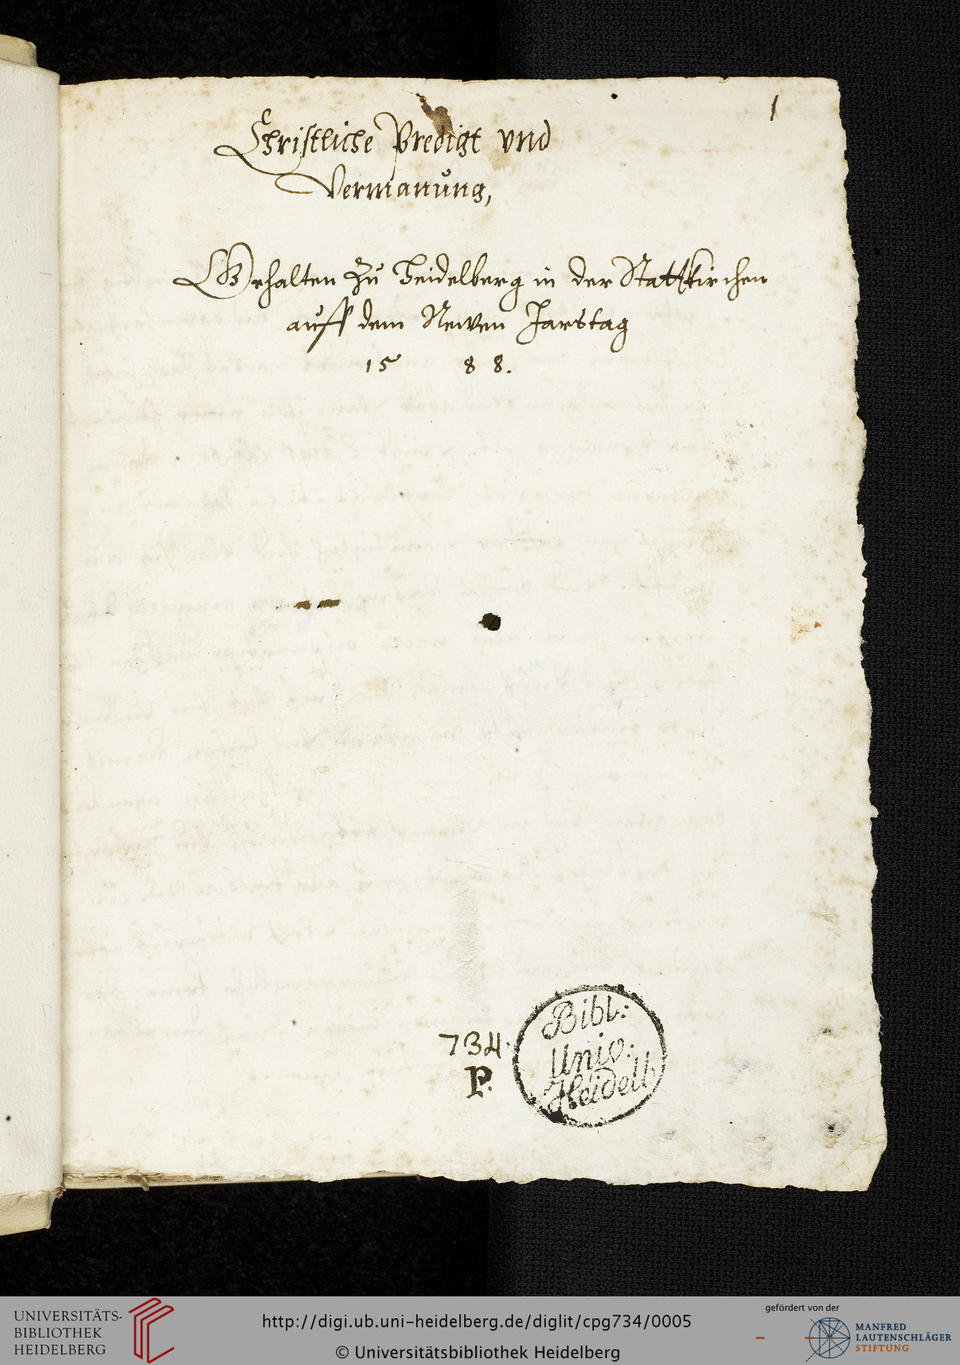 1
Christliche Predigt vnd
Vermanung,
Gehalten zu Heidelberg in der Stattkirchen
auff dem Newen Jarstag
15 88.
734.
P.
Bibl:
Univ:
Heidelb
UNIVERSITÄTS-
BIBLIOTHEK
HEIDELBERG
http://digi.ub.uni-heidelberg.de/diglit/cpg734/0005
© Universitätsbibliothek Heidelberg
gefördert von der
MANFRED
LAUTENSCHLÄGER
STIFTUNG